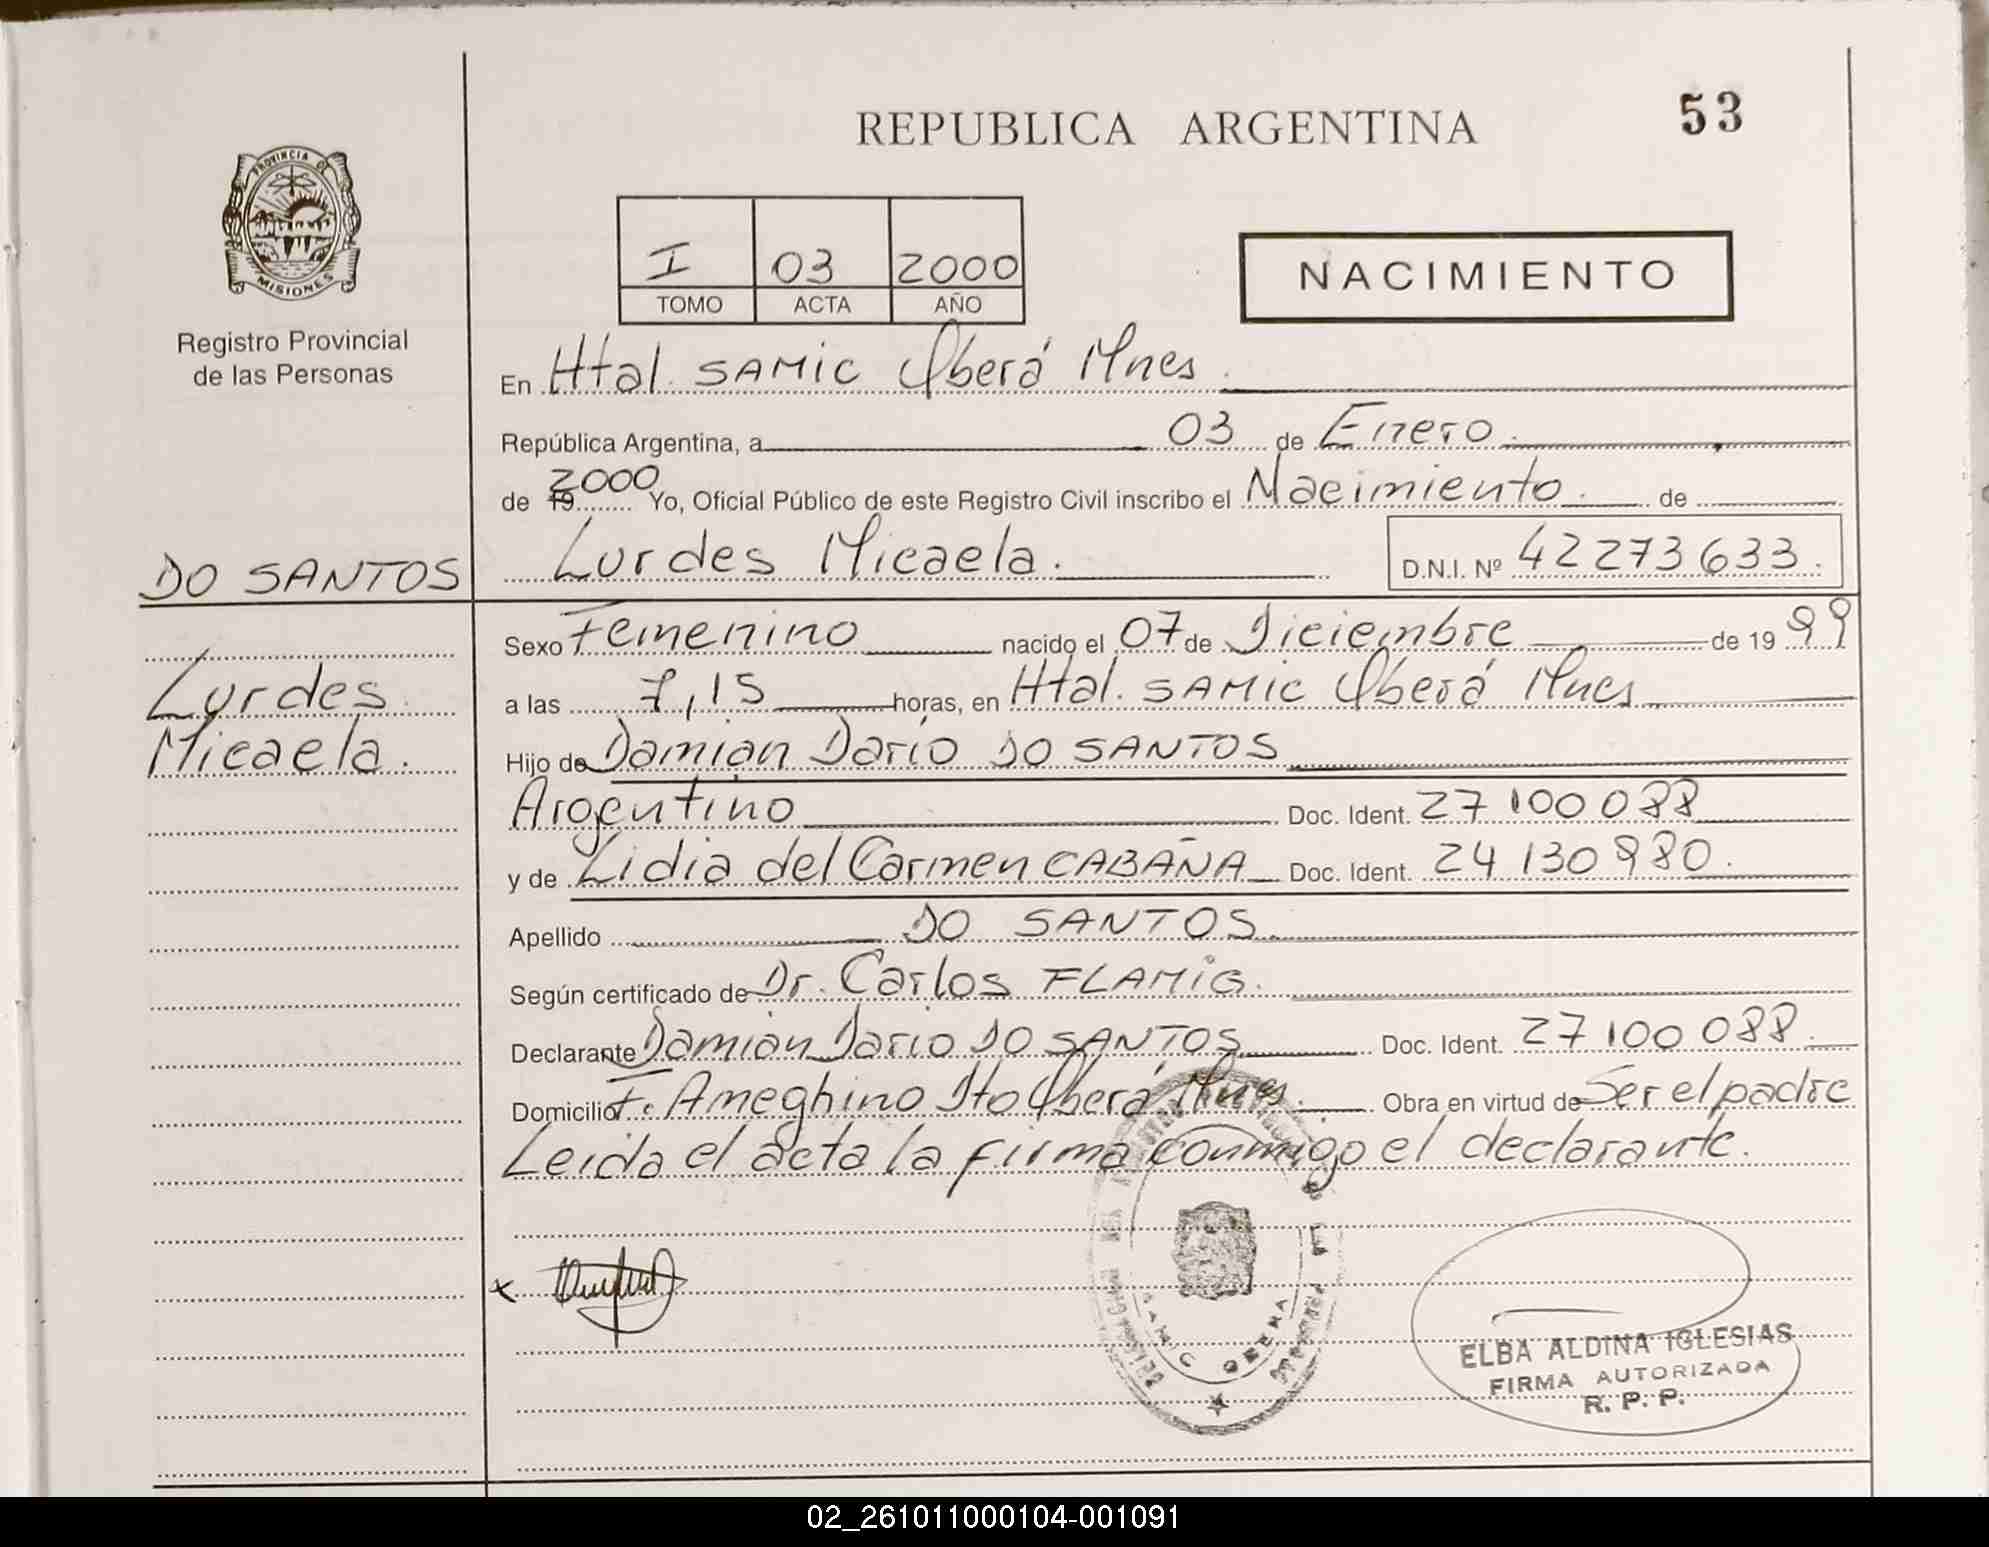 53
REPUBLICA ARGENTINA
PROVINCIA DE
MISIONES
Registro Provincial
de las Personas
I 03 2000
TOMO ACTA AÑO
NACIMIENTO
En Htal. SAMIC Oberá Mnes.
República Argentina, a 03 de Enero.
de 19 2000 Yo, Oficial Público de este Registro Civil inscribo el Nacimiento. de
DO SANTOS
Lurdes Micaela. D.N.I. Nº 42273633.
Lurdes
Micaela.
Sexo Femenino nacido el 07 de Diciembre de 19 99
a las 7,15 horas, en Htal. SAMIC Oberá Mnes
Hijo de Damián Darío DO SANTOS
Argentino Doc. Ident. 27 100 088
y de Lidia del Carmen CABAÑA Doc. Ident. 24 130 980.
Apellido DO SANTOS.
Según certificado de Dr. Carlos FLAMIG.
Declarante Damián Darío DO SANTOS Doc. Ident. 27 100 088.
Domicilio F. Ameghino Sto Oberá Mnes. Obra en virtud de Ser el padre
Leida el acta la firma conmigo el declarante.
x
OBERA
ELBA ALDINA IGLESIAS
FIRMA AUTORIZADA
R. P. P.
02_261011000104-001091